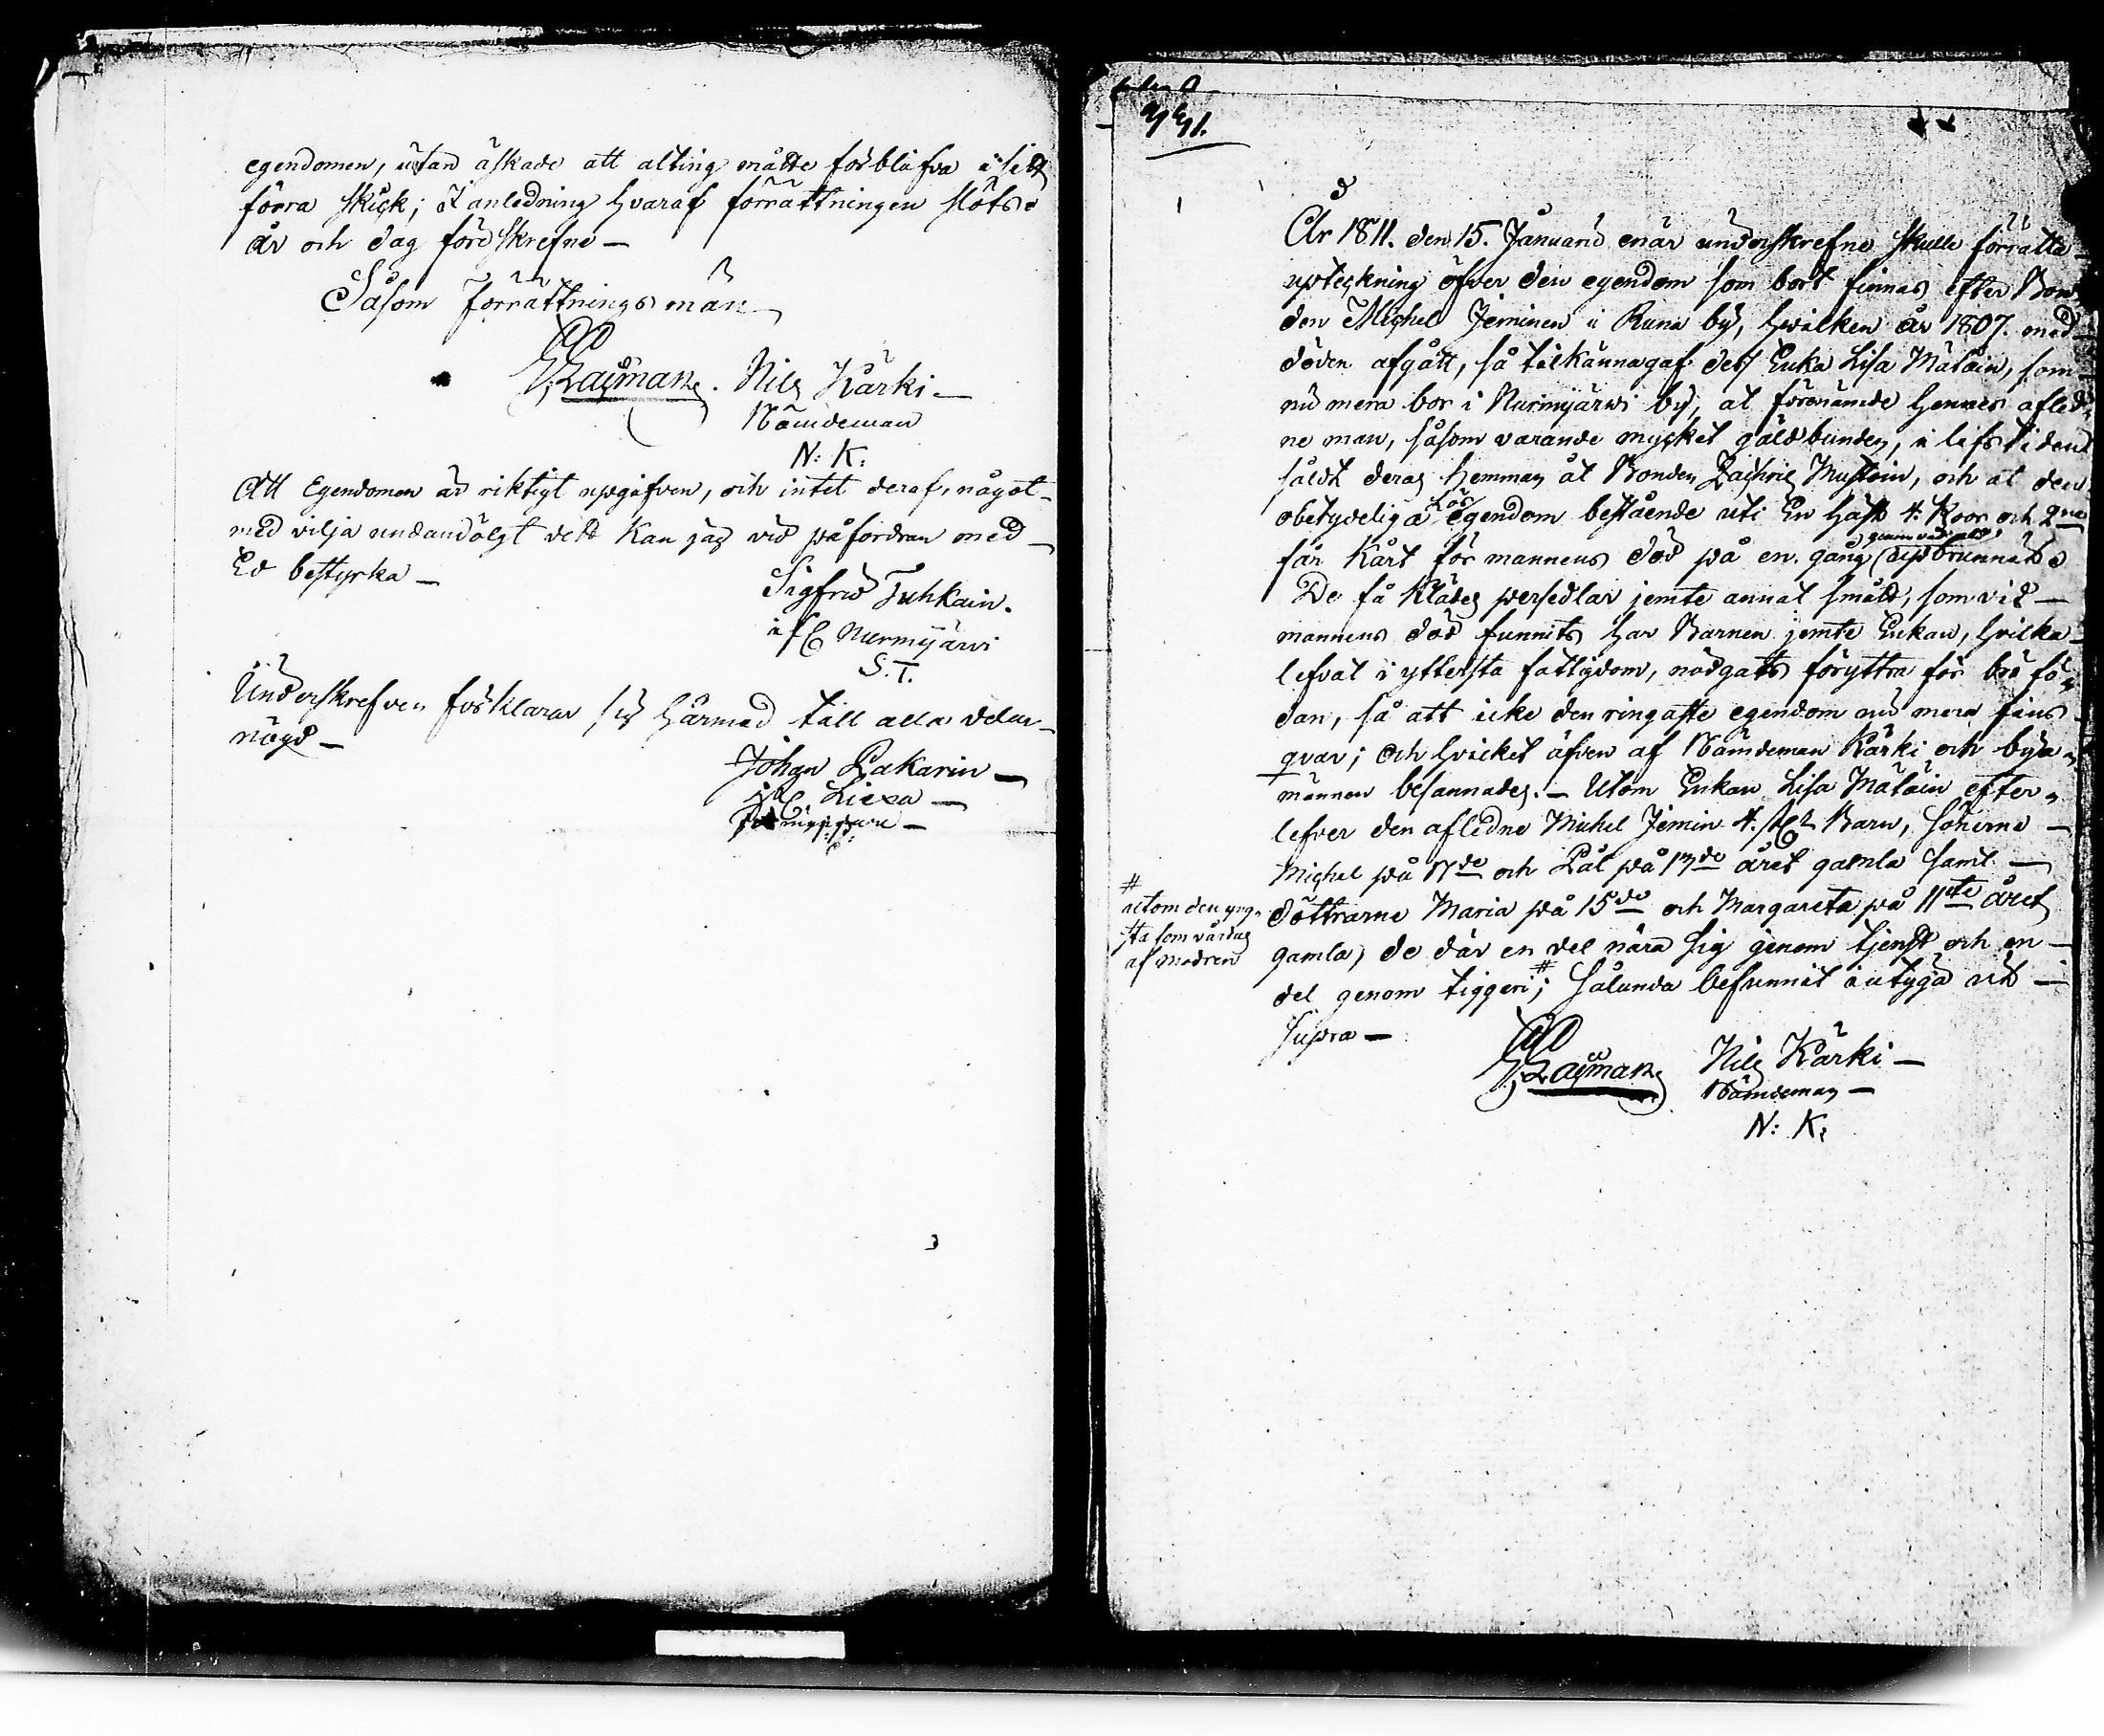 egendomen, utan äskade att alting måtte förblifva i sitt
förra skick; I anledning hvaraf förrättningen slöts
år och dag förr skrefne —
Såsom Förrättningsmän
Nils Kärki —
Nämdeman
N: K:
Att Egendomen är riktigt upgifven, och intet deraf, något
med vilja undandölgt det kan jag vid påfordran med
Ed bestyrka —
Sigfrid Tuhkain.
Nurmijärvi
S. T.
Underskrefven förklarar sig härmed till alla delar
nögd —
Johan Lakarin —
Liexa —
År 1811. den 15. Januarii enär underskrefne skulle förrätta
upteckning öfver den egendom som bort finnas efter Bon
den Michel Jeminen i Runa by, hvilken år 1807. med
döden afgått, så tilkännagaf dess Enka Lisa Mätäin, som
nu mera bor i Nurmijärvi by, at förenämde hennes afled
ne man, såsom varande mycket gäldbunden, i lifstiden
såldt deras hemman åt Bonden Zachris Mustoin, och at den
obetydeliga lös egendom bestående uti En häst 4. Koor och 2ne
får kårt för mannens död på en gång genom vådeld upbrunnit
De få Kläder persedlar jemte annat smått, som vid —
mannens död funnits har Barnen jemte Enkan, hvilka
lefvat i yttersta fattigdom, nödgats föryttra för brö fö
dan, så att icke den ringaste egendom nu mera fins
qvar; och hvilket äfven af Nämdeman Kärki och bya
männen besannades. — Utom Enkan Lisa Mätäin efter
lefver den aflidne Michel Jemin 4. st Barn, Sönerne —
Michel på 17de och Pål på 13de året gamla samt —
#
utom den yng
sta som vårdas
af modren
döttrarne Maria på 15de och Margareta på 11te året
gamla, de där en del nära sig genom tjenst och en —
del genom tiggeri #; Sålunda befunnit intyga ut —
supra —
Nils Kärki —
Nämdeman —
N: K: